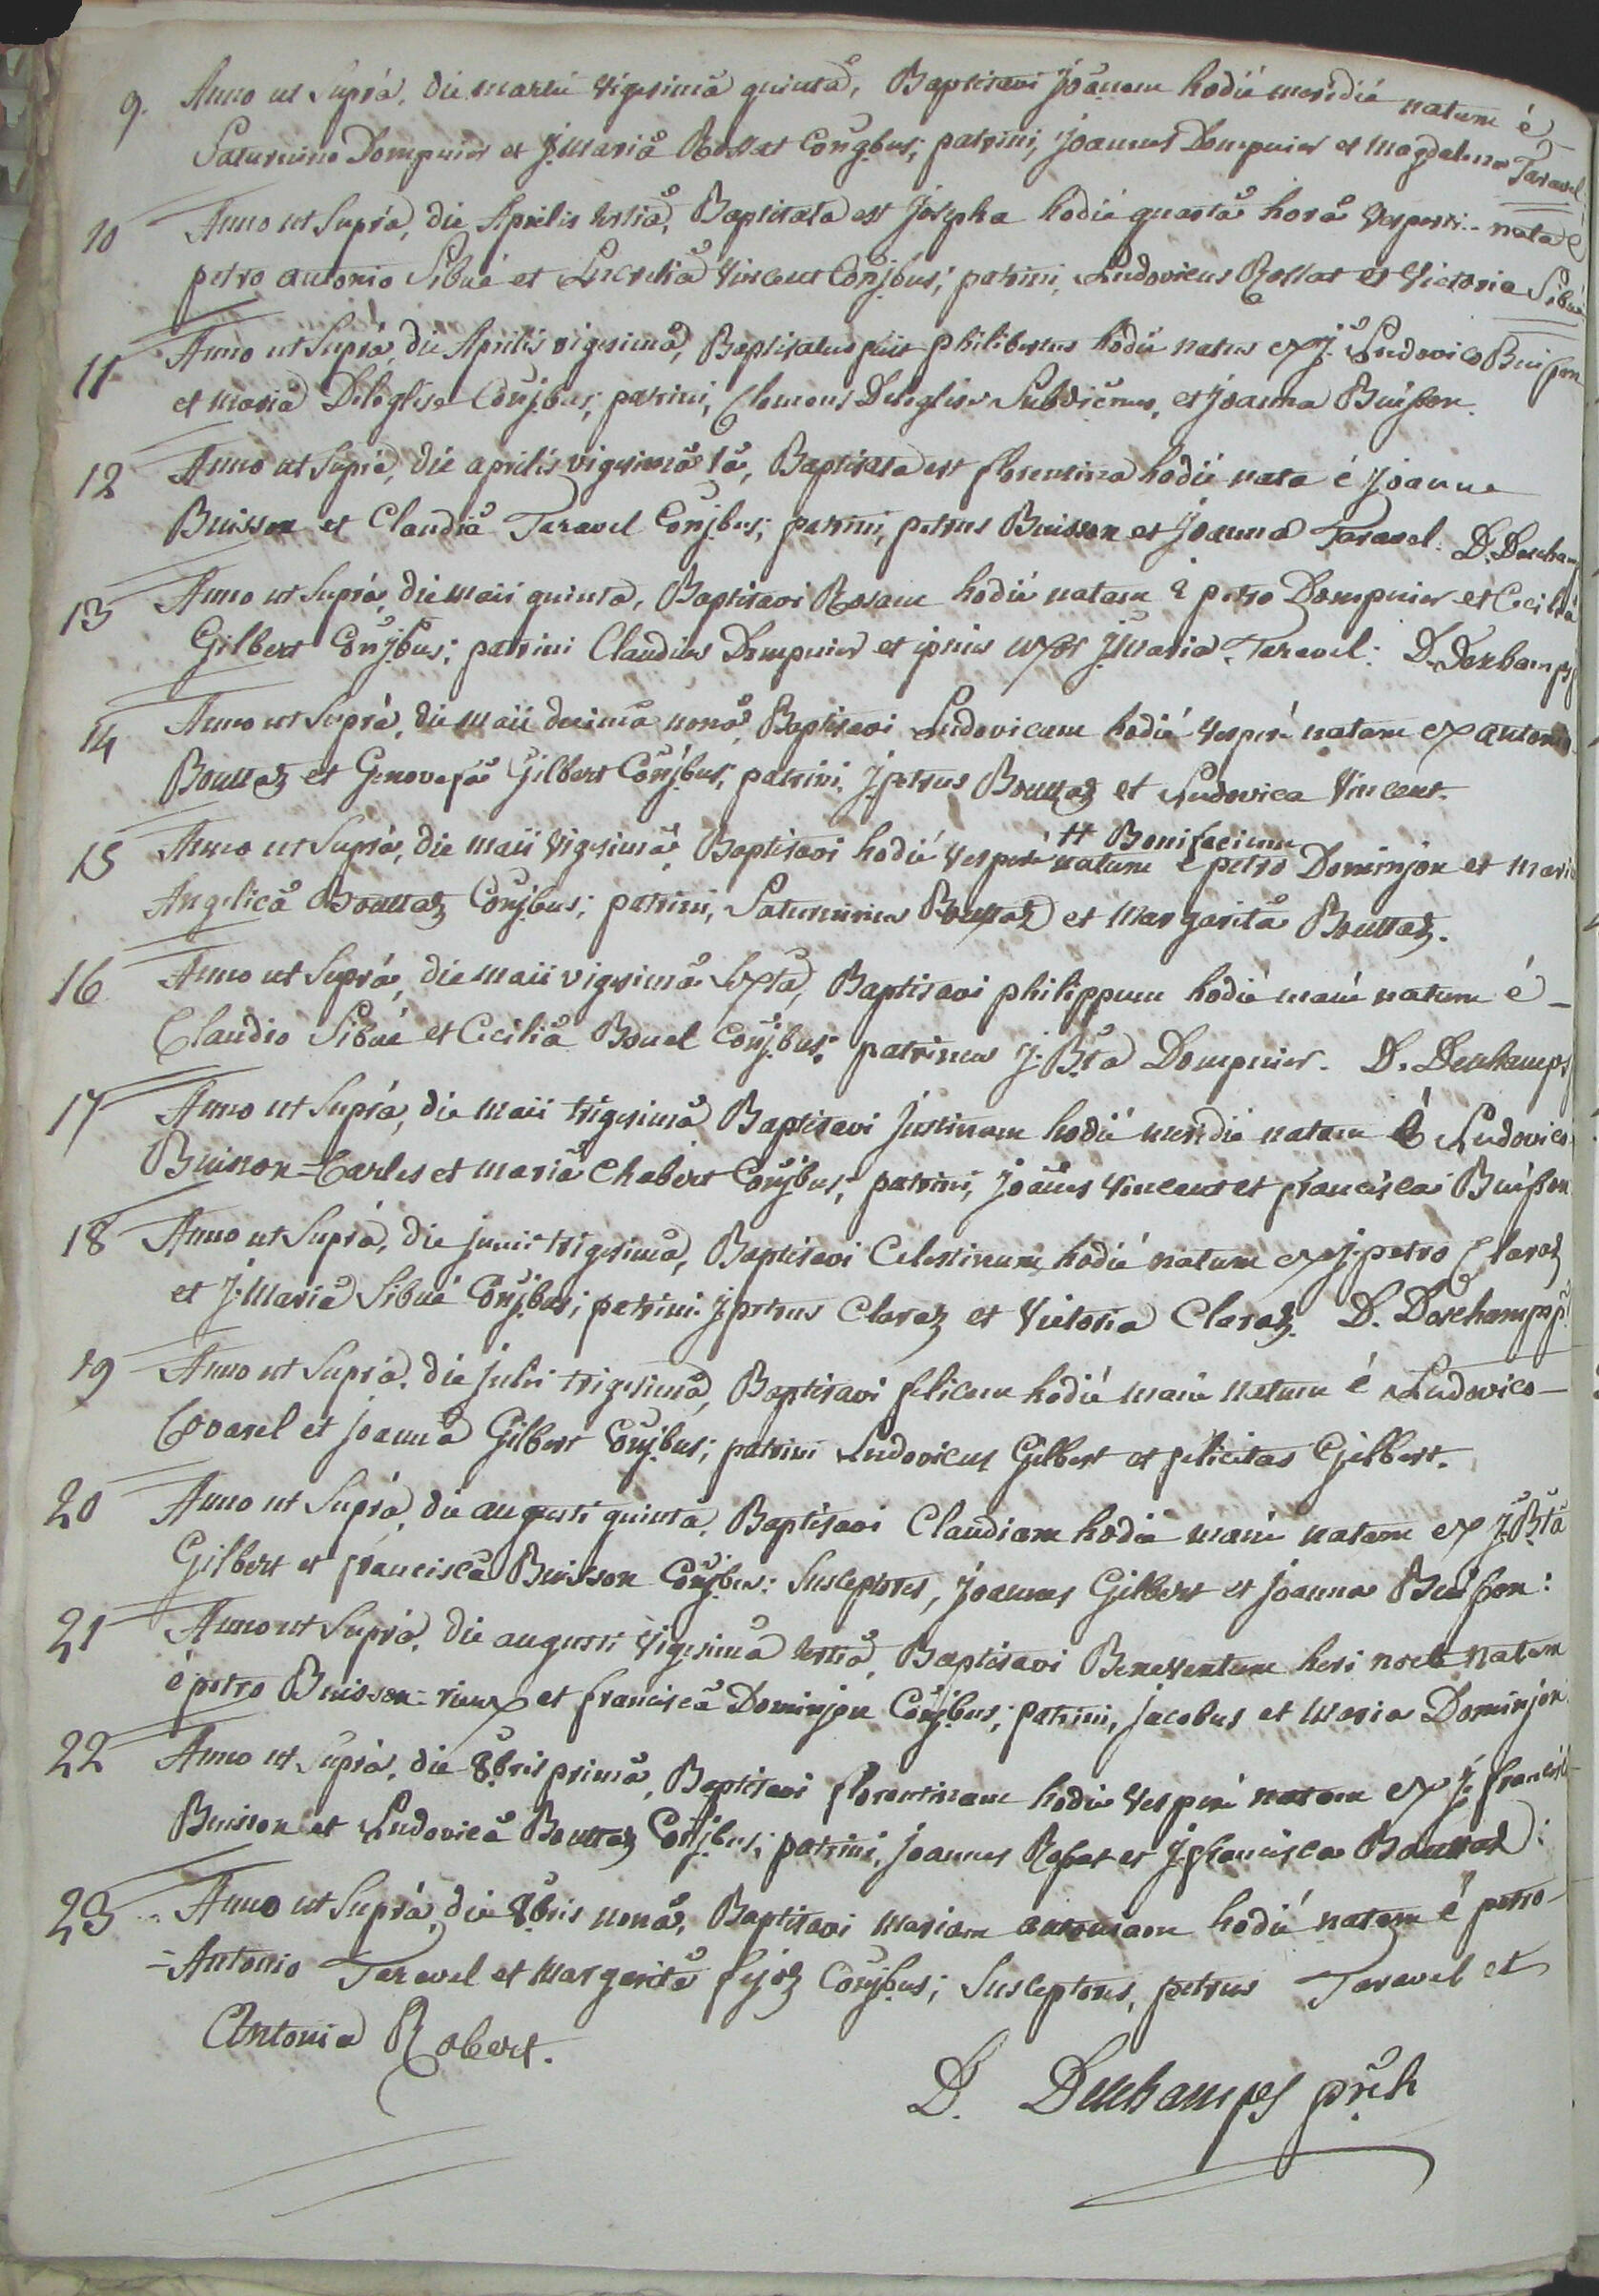 9. Anno ut Suprà, die martii vigesimâ quintâ, Baptisavi Joãnem hodiè meridiè natum è
Saturnino Dompnier et J. mariâ Rossat Conjbus; patrini, Joannes Dompnier et Magdalena Taravel
10 Anno ut Suprà, die Aprilis tertiâ, Baptisata est Josepha hodiè quartâ horâ vesperti.. nata è
petro antonio Sibué et Lucretiâ Vincent Conjbus; patrini, Ludovicus Rossat et Victoria Sibué
11 Anno ut Suprà, die Aprilis vigesimâ, Baptisatus fuit philibertus hodiè natus ex J. Ludovico Buisson
et mariâ Déléglise Conjbus; patrini, Clemens Deleglise Subdiĉnus, et Joanna Buisson.
12 Anno ut Suprà, die aprilis vigesimâ 1â, Baptisata est florentina hodiè nata è Joanne
Buisson et Claudiâ Taravel Conjbus; patrini, petrus Buisson et Joanna Taravel. D. Deschamps
13 Anno ut Suprà, die maii quintâ, Baptisavi Rosam hodiè natam è petro Dompnier et Ceciliâ
Gilbert Conjbus; patrini Claudius Dompnier et ipsius uxor J. maria Taravel: D. Deschamps
14 Anno ut Suprà, die maii decimâ nonâ, Baptisavi Ludovicam hodiè vesperè natam ex antonio
Bouttaz et Genovefâ Gilbert Conjbus; patrini, J. petrus Bouttaz et Ludovica Vincent.
# Bonifacium
15 Anno ut Suprà, die maii vigesimâ, Baptisavi hodiè vesperè natum è petro Dominjon et mariâ
Angelicâ Bouttaz Conjbus; patrini, Saturninus Bouttaz et Margarita Bouttaz.
16 Anno ut Suprà, die maii vigesimâ Sextâ, Baptisavi philippum hodiè manè natum è –
Claudio Sibué et Ceciliâ Bonel Conjbus; patrinus J. Bta Dompnier. D. Deschamps
17 Anno ut Suprà, die maii trigesimâ Baptisavi Justinam hodiè meridiè natam è Ludovico
Buisson=Carles et mariâ Chabert Conjbus; patrini, Joãnes Vincent et francisca Buisson
18 Anno ut Suprà, die junii trigesimâ, Baptisavi Celestinum hodiè natum ex J. petro Claraz
et J. Mariâ Sibué Conjbus; patrini J. petrus Claraz et Victoria Claraz. D. Deschamps p.
19 Anno ut Suprà, die julii trigesimâ, Baptisavi felicem hodiè manè natum è Ludovico –
Covarel et joannâ Gilbert Conjbus; patrini Ludovicus Gilbert et felicitas Gilbert.
20 Anno ut Suprà, die augusti quintâ, Baptisavi Claudiam hodiè manè natam ex J. Bta
Gilbert et franciscâ Buisson Conjbus: Susceptores, Joannes Gilbert et Joanna Buisson:
21 Anno ut Suprà, die augusti vigesimâ tertiâ, Baptisavi Beneventum heri nocte natum
è petro Buisson-rieux et franciscâ Dominjon Conjbus; patrini, Jacobus et Maria Dominjon
22 Anno ut Suprà, die 8bris primâ, Baptisavi florentinam hodiè vesperè natam ex J. francisco
Buisson et Ludovicâ Bouttaz Conjbus; patrini, Joannes Rossat et J. francisca Bouttaz:
23 Anno ut Suprà, die 8bris nonâ, Baptisavi mariam antoniam hodiè natam è petro-
-Antonio Taravel et Margaritâ fejoz Conjbus; Susceptores, petrus Taravel et
Antonia Robert.
D. Deschamps